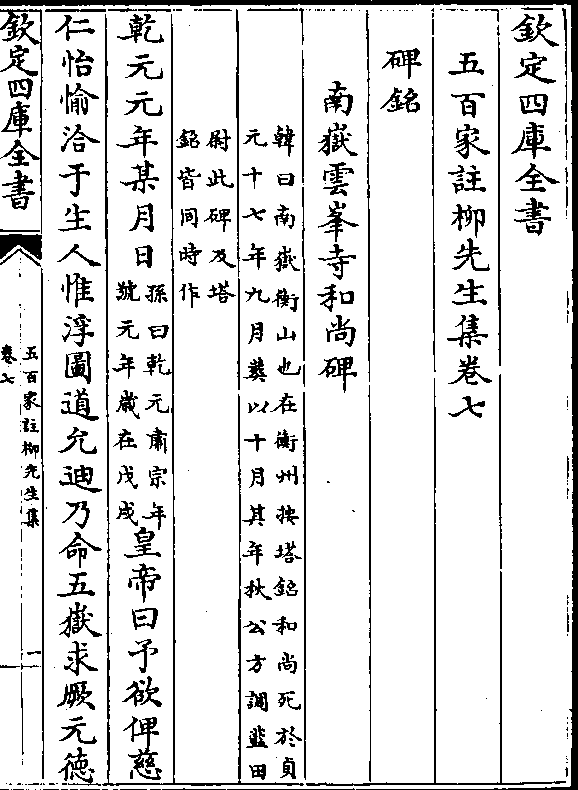 欽定四庫全書
五百家註柳先生集卷七
碑銘
南嶽雲峯寺和尚碑
韓曰南嶽衡山也在衡州按塔銘和尚死於貞
元十七年九月葬以十月其年秋公方調藍田
尉此碑及塔
銘皆同時作
乾元元年某月日
孫曰乾元肅宗年
號元年歲在戊戌
皇帝曰予欲俾慈
仁怡愉洽于生人惟浮圖道允迪乃命五嶽求厥元德
欽定四庫全書
五百家註柳先生集
卷七
一